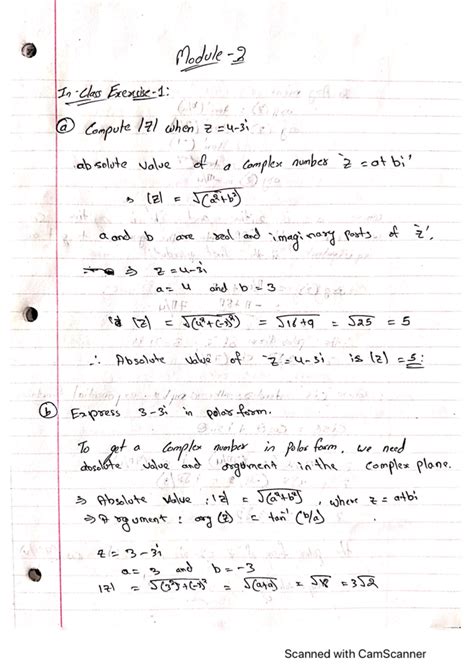 Module-2
In-Class Exercise-1:
(a) Compute |z| when z = 4-3i
absolute value of a complex number 'z = a+bi'
⇒ |z| = √(a²+b²)
a and b are real and imaginary parts of 'z',
⇒ z = 4-3i
a = 4 and b = 3
|z| = √(4²+(-3)²) = √16+9 = √25 = 5
∴ Absolute value of z = 4-3i is |z| = 5.
(b) Express 3-3i in polar form.
To get a complex number in polar form, we need
absolute value and argument in the complex plane.
⇒ Absolute value : |z| = √(a²+b²), where z = a+bi
⇒ Argument : arg(z) = tan⁻¹(b/a)
z = 3-3i
a = 3 and b = -3
|z| = √(3²)+(-3)² = √(9+9) = √18 = 3√2
Scanned with CamScanner